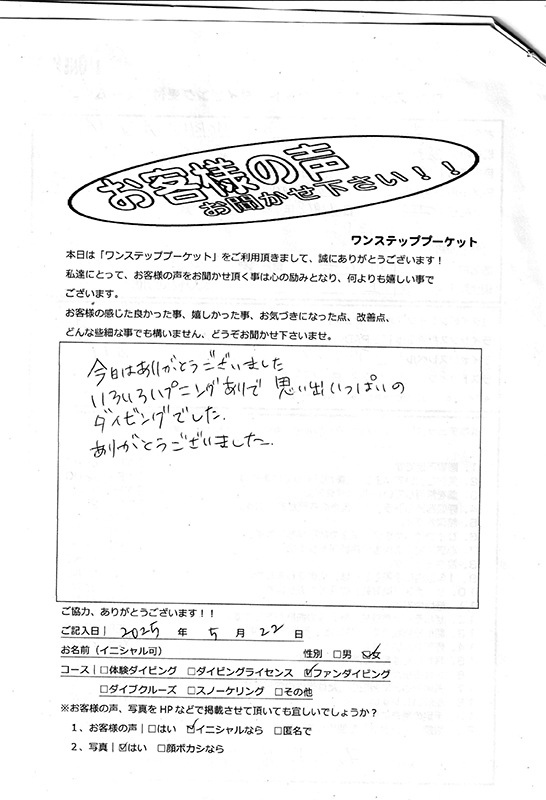 お客様の声
お聞かせ下さい！！
ワンステッププーケット
本日は「ワンステッププーケット」をご利用頂きまして、誠にありがとうございます！
私達にとって、お客様の声をお聞かせ頂く事は心の励みとなり、何よりも嬉しい事で
ございます。
お客様の感じた良かった事、嬉しかった事、お気づきになった点、改善点、
どんな些細な事でも構いません、どうぞお聞かせ下さいませ。
今日はありがとうございました
いろいろハプニングありで 思い出いっぱいの
ダイビングでした.
ありがとうございました.
ご協力、ありがとうございます！！
ご記入日| 2025 年 5 月 22 日
お名前（イニシャル可） 性別 □男 ☑女
コース|□体験ダイビング □ダイビングライセンス ☑ファンダイビング
□ダイブクルーズ □スノーケリング □その他
※お客様の声、写真をHPなどで掲載させて頂いても宜しいでしょうか？
1、お客様の声|□はい ☑イニシャルなら □匿名で
2、写真|☑はい □顔ボカシなら